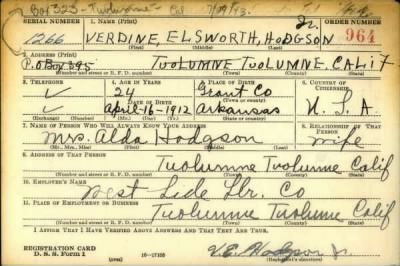 Box 323 - Tuolumne - Cal 7/09/43.
SERIAL NUMBER 1. NAME (Print) ORDER NUMBER
1266 VERDINE, ELSWORTH, HODGSON Jr. 964
(First) (Middle) (Last)
2. ADDRESS (Print)
P.O Box 395 TUOLUMNE TUOLUMNE, CALIF
(Number and street or R. F. D. number) (Town) (County) (State)
3. TELEPHONE 4. AGE IN YEARS 5. PLACE OF BIRTH 6. COUNTRY OF CITIZENSHIP
✓ 24 Grant Co
DATE OF BIRTH (Town or county)
✓ April-16-1912 Arkansas U. S. A
(Exchange) (Number) (Mo.) (Day) (Yr.) (State or country)
7. NAME OF PERSON WHO WILL ALWAYS KNOW YOUR ADDRESS 8. RELATIONSHIP OF THAT PERSON
Mrs. Alda Hodgson wife
(Mr., Mrs., Miss) (First) (Middle) (Last)
9. ADDRESS OF THAT PERSON
Tuolumne Tuolumne Calif
(Number and street or R. F. D. number) (Town) (County) (State)
10. EMPLOYER'S NAME
West Side Lbr. Co
11. PLACE OF EMPLOYMENT OR BUSINESS
Tuolumne Tuolumne Calif
(Number and street or R. F. D. number) (Town) (County) (State)
I AFFIRM THAT I HAVE VERIFIED ABOVE ANSWERS AND THAT THEY ARE TRUE.
REGISTRATION CARD
D. S. S. Form 1 (over) 16-17105 V. E. Hodgson Jr.